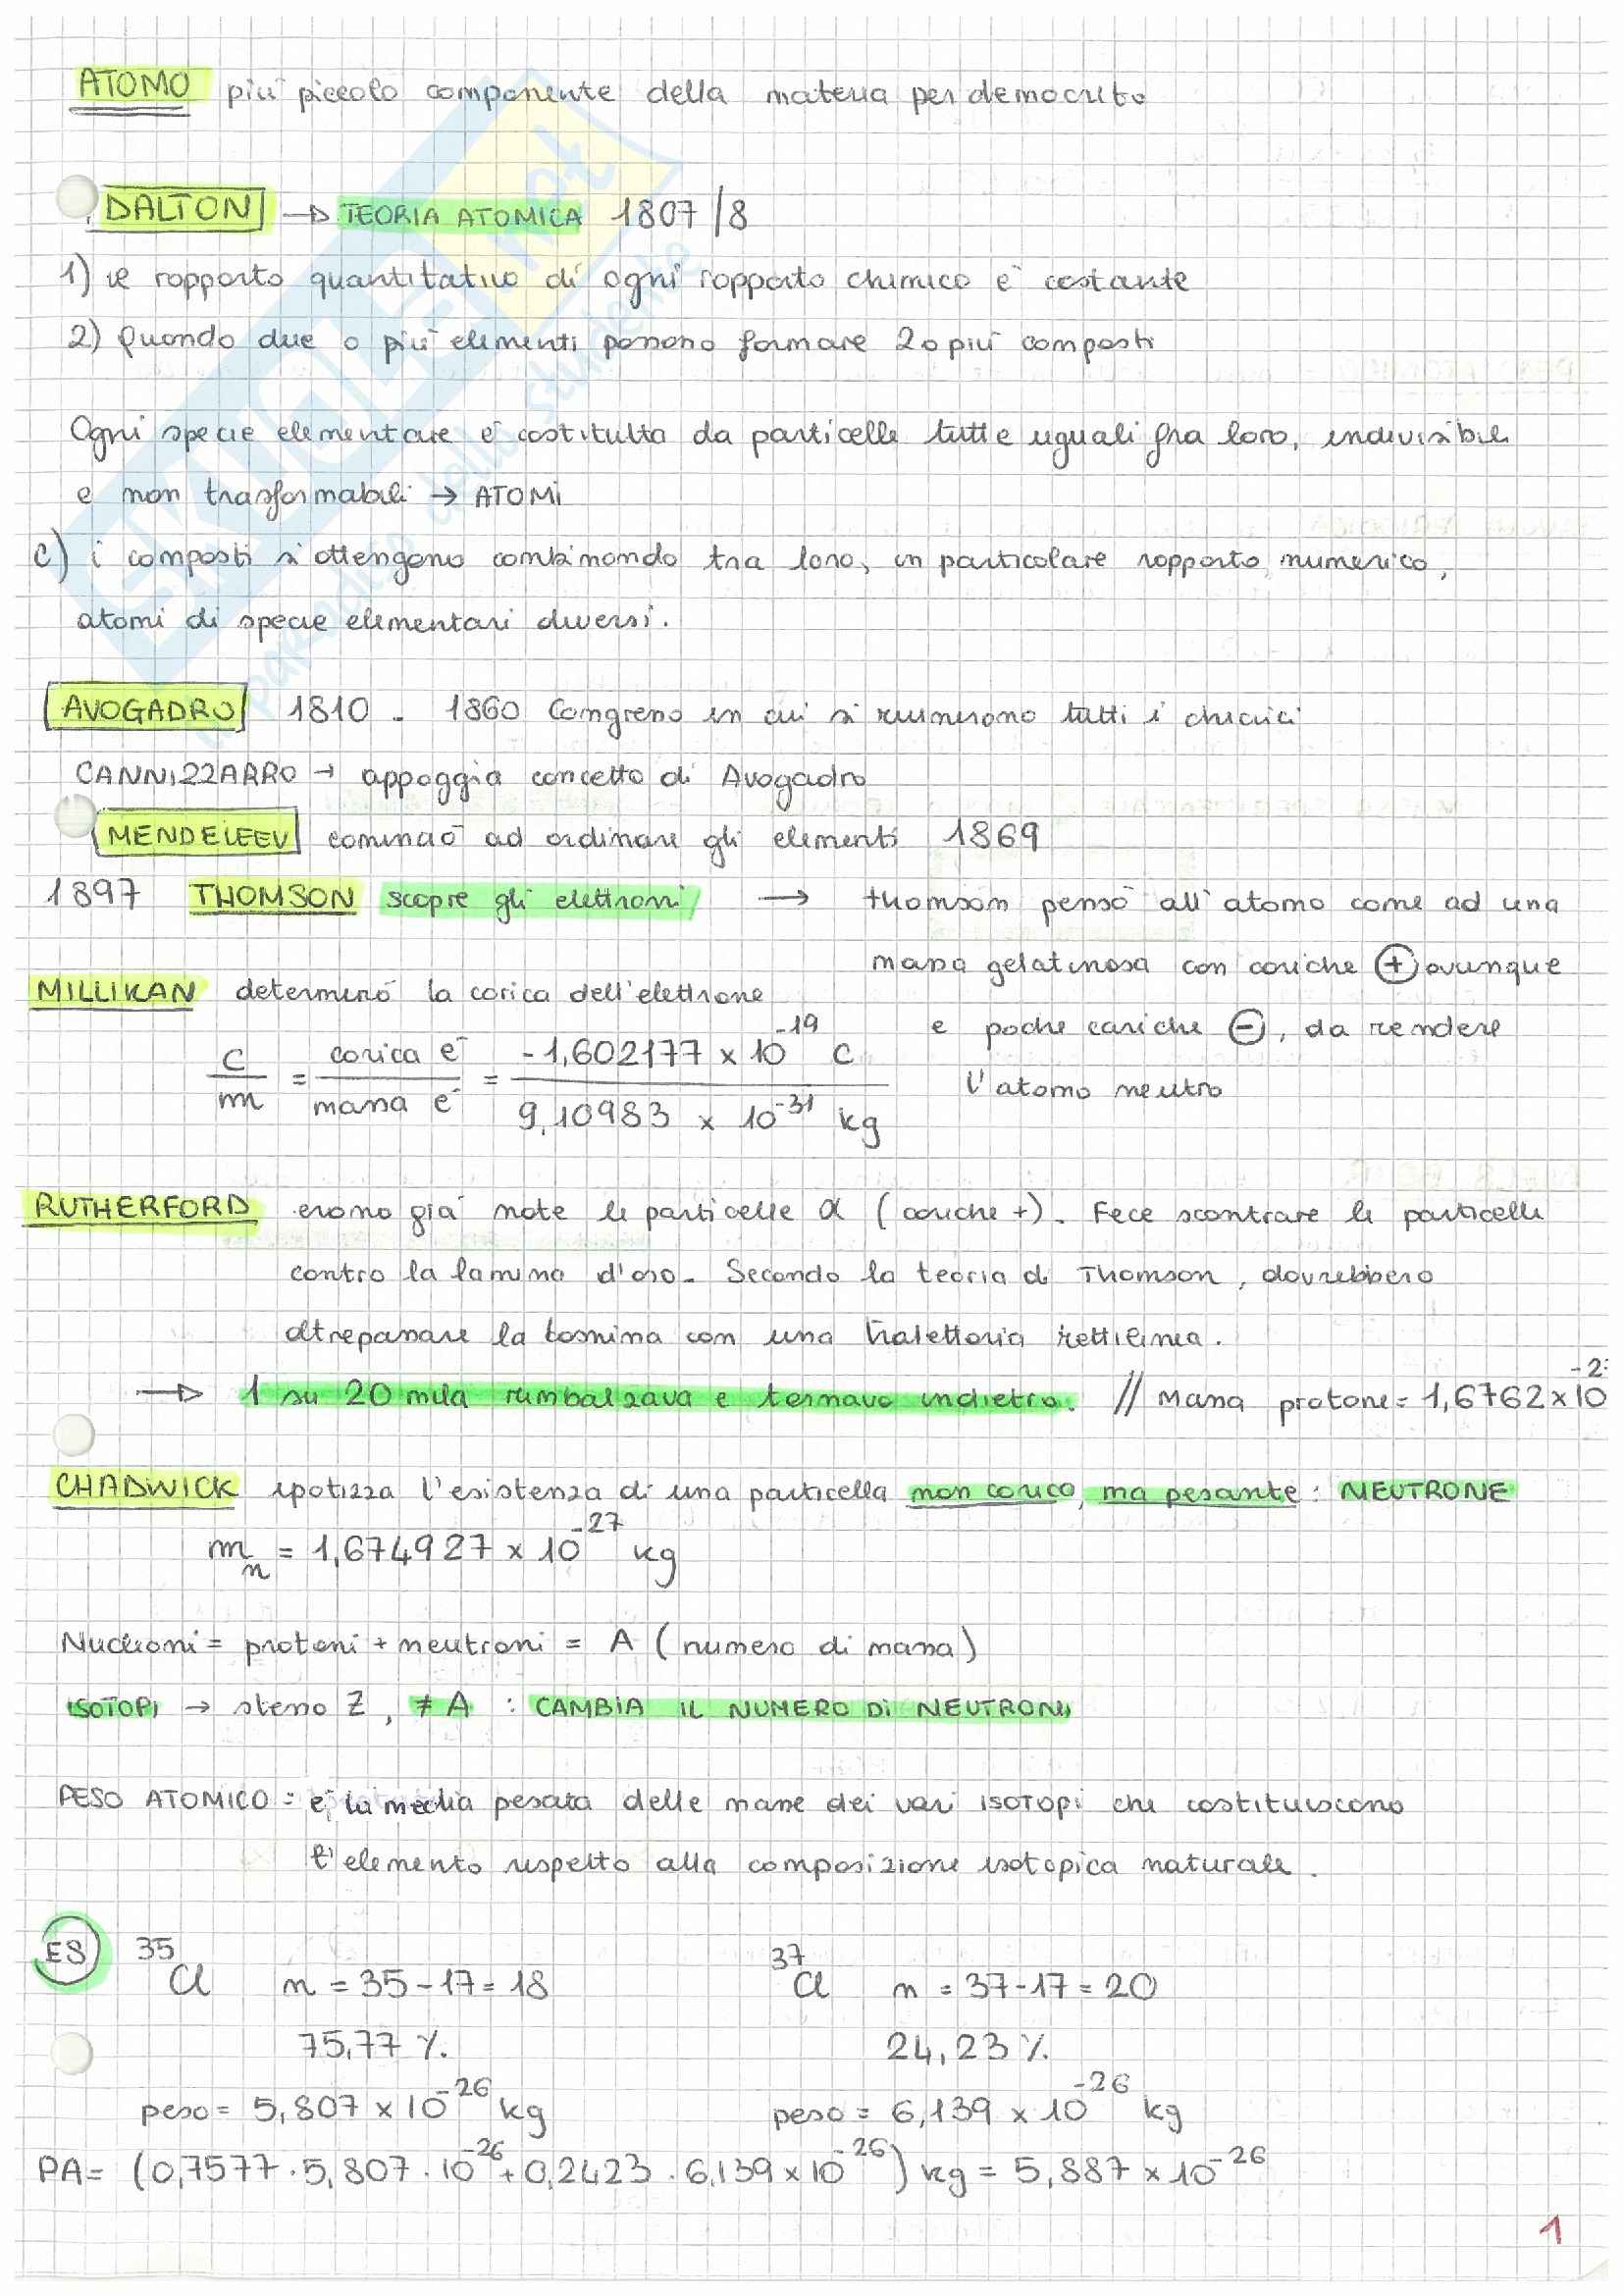 ATOMO più piccolo componente della materia per democrito
DALTON → TEORIA ATOMICA 1807/8
1) il rapporto quantitativo di ogni rapporto chimico è costante
2) Quando due o più elementi possono formare 2 o più composti
Ogni specie elementare è costituita da particelle tutte uguali fra loro, indivisibili
e non trasformabili → ATOMI
c) i composti si ottengono combinando tra loro, in particolare rapporto numerico,
atomi di specie elementari diversi.
AVOGADRO 1810 - 1860 Congresso in cui si riunirono tutti i chimici
CANNIZZARRO → appoggia concetto di Avogadro
MENDELEEV cominciò ad ordinare gli elementi 1869
1897 THOMSON scopre gli elettroni → thomson pensò all'atomo come ad una
massa gelatinosa con cariche ⊕ ovunque
e poche cariche ⊖, da rendere
l'atomo neutro
MILLIKAN determinò la carica dell'elettrone
C/m = carica e⁻/massa e⁻ = -1,602177 x 10⁻¹⁹ C / 9,10983 x 10⁻³¹ kg
RUTHERFORD erano già note le particelle α (cariche +). Fece scontrare le particelle
contro la lamina d'oro. Secondo la teoria di Thomson, dovrebbero
oltrepassare la lamina con una traiettoria rettilinea.
→ 1 su 20 mila rimbalzava e tornava indietro. // Massa protone = 1,6762 x 10⁻²
CHADWICK ipotizza l'esistenza di una particella non carica, ma pesante: NEUTRONE
mₙ = 1,674927 x 10⁻²⁷ kg
Nucleoni = protoni + neutroni = A (numero di massa)
ISOTOPI → stesso Z, ≠ A : CAMBIA IL NUMERO DI NEUTRONI
PESO ATOMICO = è la media pesata delle masse dei vari ISOTOPI che costituiscono
l'elemento rispetto alla composizione isotopica naturale.
ES ³⁵Cl n = 35-17 = 18 ³⁷Cl n = 37-17 = 20
75,77 % 24,23 %
peso = 5,807 x 10⁻²⁶ kg peso = 6,139 x 10⁻²⁶ kg
PA = (0,7577 · 5,807 · 10⁻²⁶ + 0,2423 · 6,139 x 10⁻²⁶) kg = 5,887 x 10⁻²⁶
1